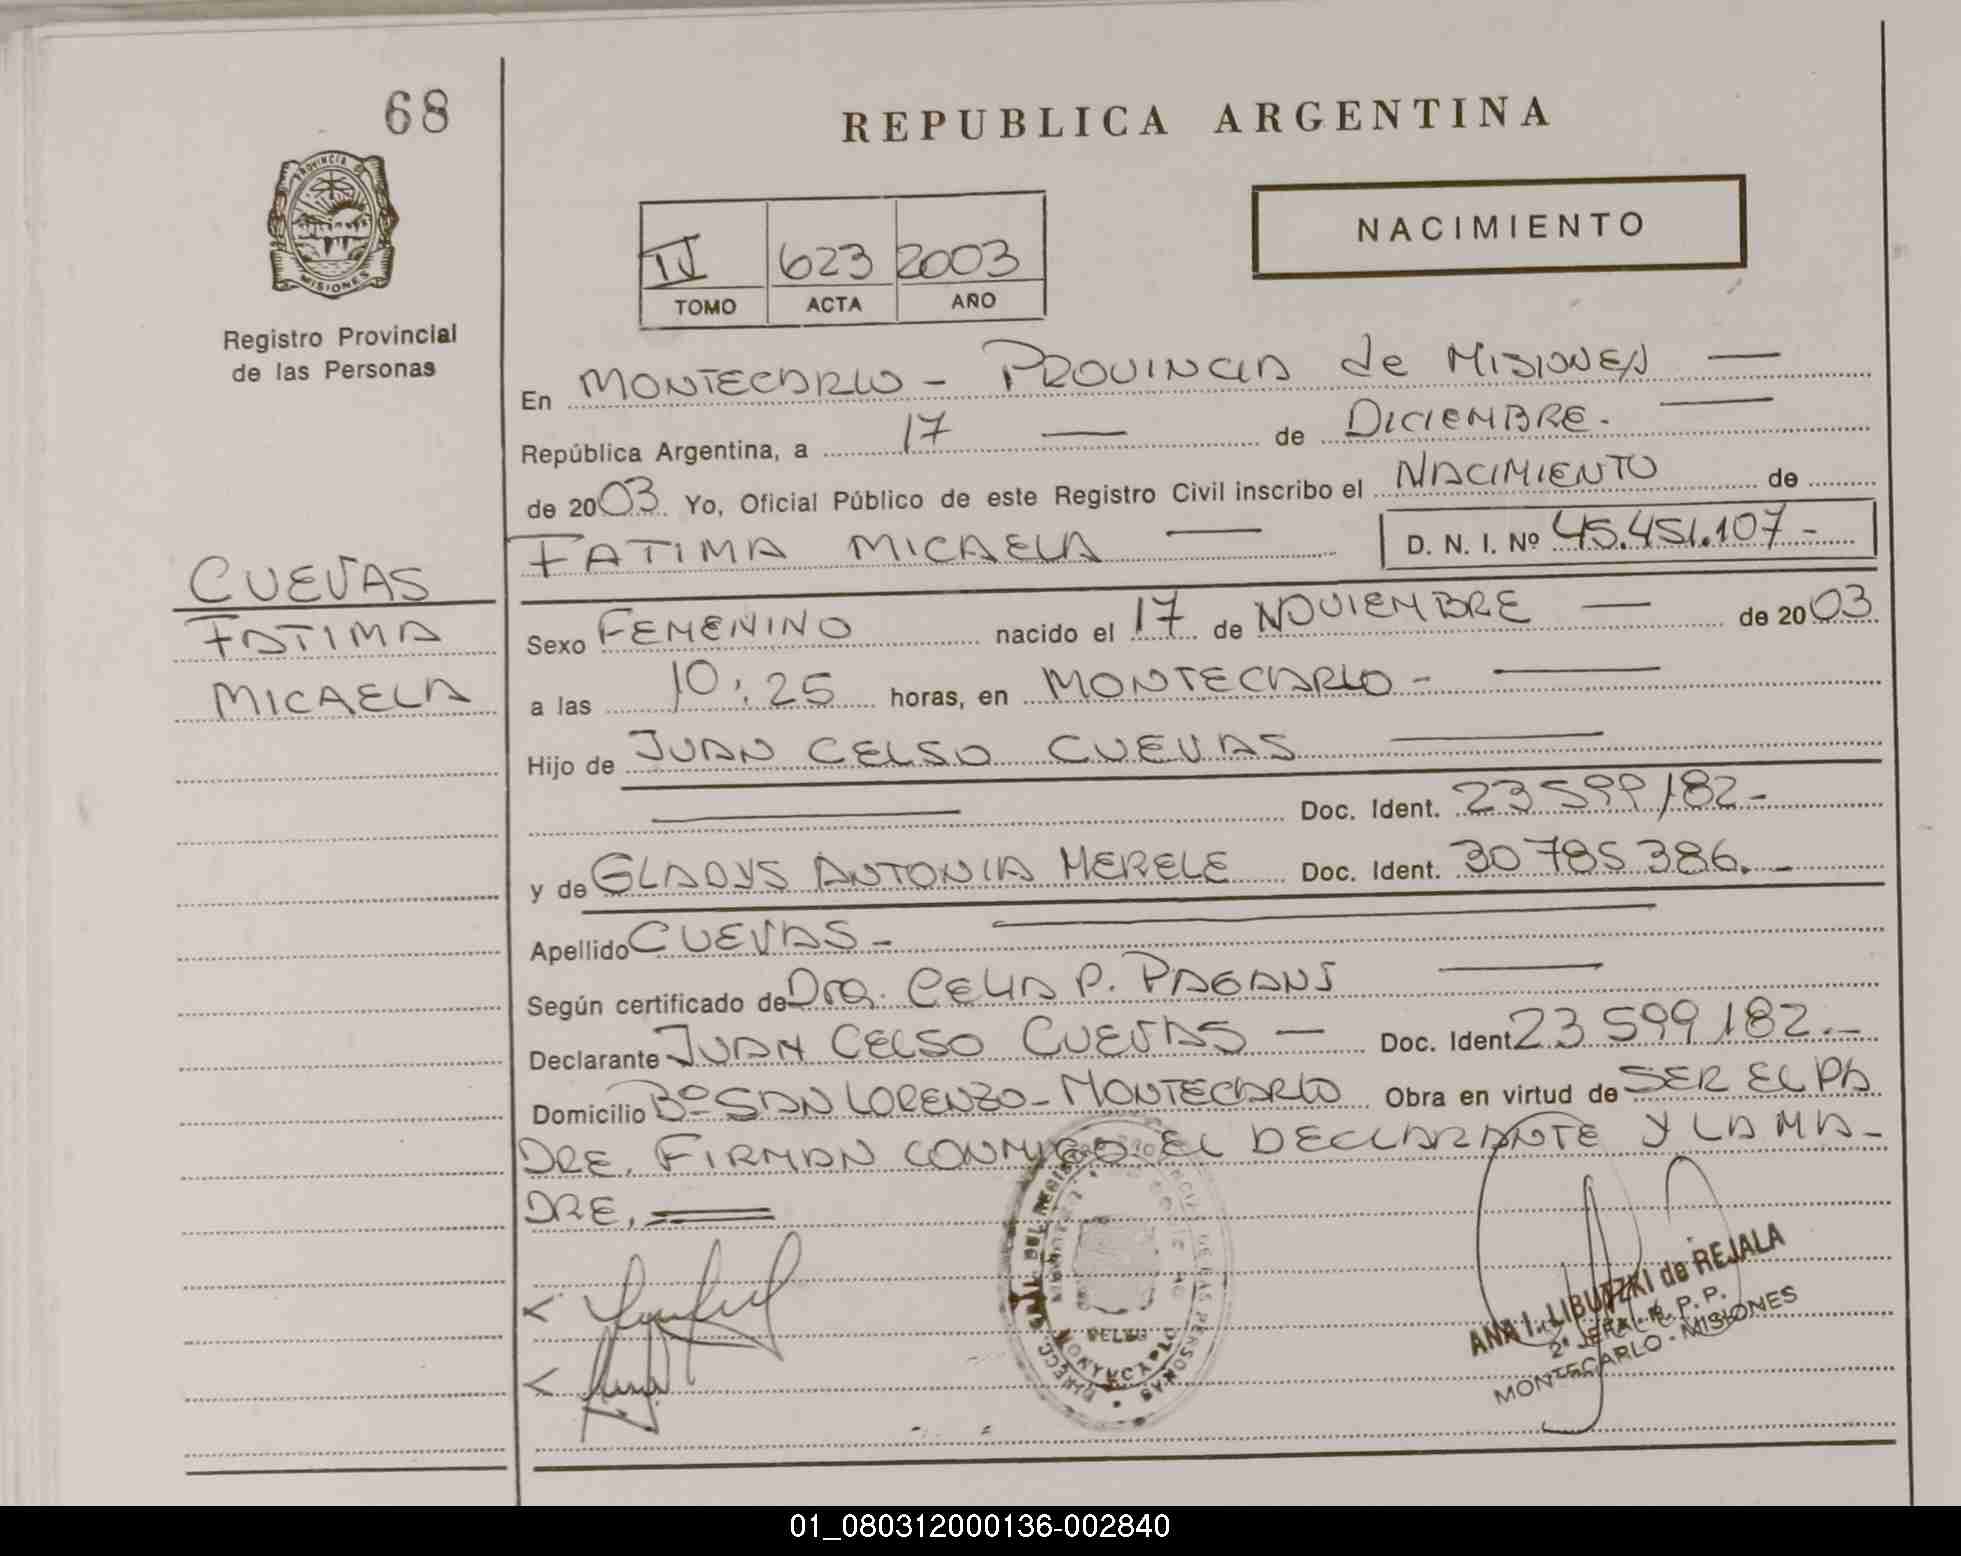 68
PROVINCIA DE
MISIONES
Registro Provincial
de las Personas
CUEVAS
FATIMA
MICAELA
REPUBLICA ARGENTINA
II 623 2003
TOMO ACTA AÑO
NACIMIENTO
En MONTECARLO - PROVINCIA de MISIONES
República Argentina, a 17 de DICIEMBRE.
de 2003. Yo, Oficial Público de este Registro Civil inscribo el NACIMIENTO de
FATIMA MICAELA D. N. I. Nº 45.451.107-
Sexo FEMENINO nacido el 17 de NOVIEMBRE de 2003
a las 10:25 horas, en MONTECARLO -
Hijo de JUAN CELSO CUEVAS
Doc. Ident. 23 599 182-
y de GLADYS ANTONIA MERELE Doc. Ident. 30 785 386.-
Apellido CUEVAS -
Según certificado de Dra. CELIA P. PAGANI
Declarante JUAN CELSO CUEVAS - Doc. Ident 23 599 182.-
Domicilio Bº SAN LORENZO - MONTECARLO Obra en virtud de SER EL PA
DRE. FIRMAN CONMIGO EL DECLARANTE Y LA MA-
DRE.
ANA I. LIBUTZKI de REJALA
MONTECARLO - MISIONES
01_080312000136-002840